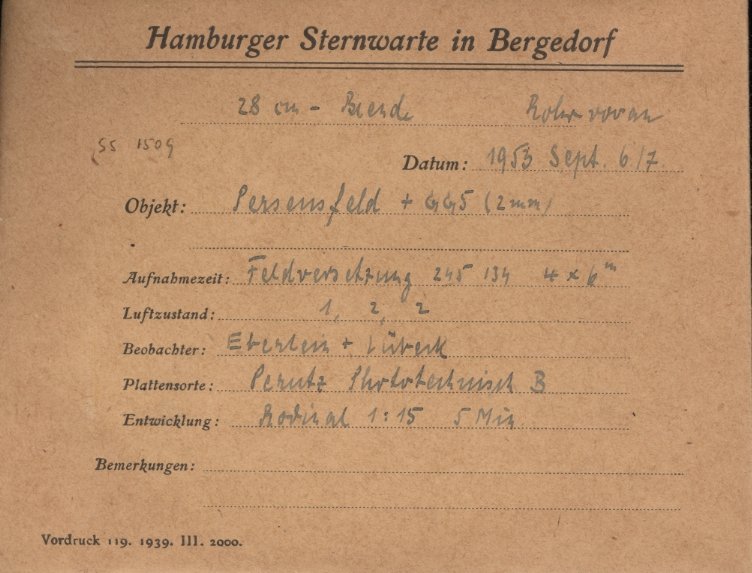 Hamburger Sternwarte in Bergedorf
28 cm - Blende Rohr voran
SS 1509
Datum: 1953 Sept. 6/7
Objekt: Perseusfeld + GG5 (2mm)
Aufnahmezeit: Feldversetzung 245 134 4 x 6m
Luftzustand: 1, 2, 2
Beobachter: Eberlein + Lübeck
Plattensorte: Perutz Phototechnisch B
Entwicklung: Rodinal 1:15 5 Min.
Bemerkungen:
Vordruck 119. 1939. III. 2000.